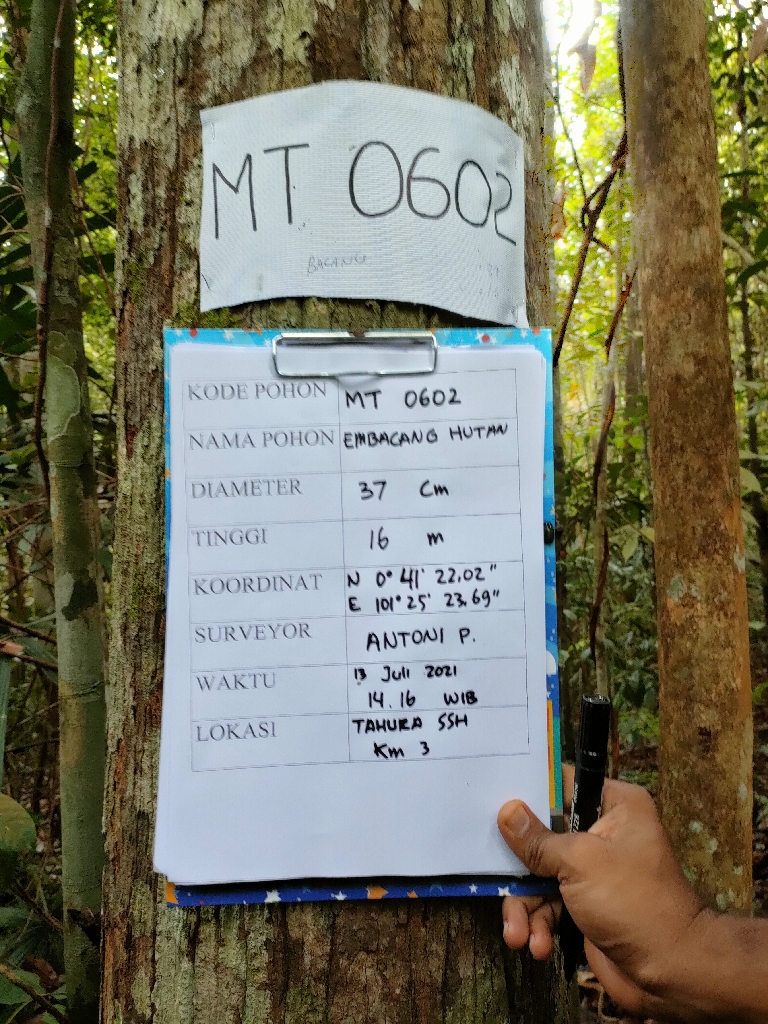 MT 0602
BACANG
KODE POHON MT 0602
NAMA POHON EMBACANG HUTAN
DIAMETER 37 Cm
TINGGI 16 m
KOORDINAT N 0° 41' 22.02"
E 101° 25' 23.69"
SURVEYOR ANTONI P.
WAKTU 13 Juli 2021
14.16 WIB
LOKASI TAHURA SSH
Km 3